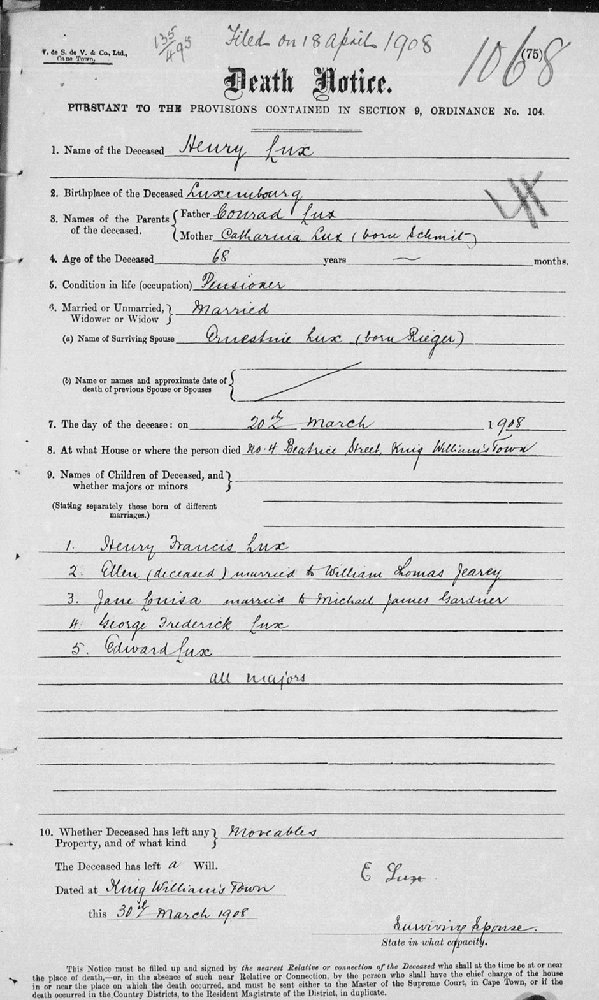 135/495
Filed on 18 April 1908
1068
T. de S. de V. & Co., Ltd.,
Cape Town,
(75)
Death Notice.
PURSUANT TO THE PROVISIONS CONTAINED IN SECTION 9, ORDINANCE No. 104.
1. Name of the Deceased Henry Lux
2. Birthplace of the Deceased Luxembourg
3. Names of the Parents of the deceased. { Father Conrad Lux
Mother Catharina Lux (born Schmit)
4. Age of the Deceased 68 years — months.
5. Condition in life (occupation) Pensioner
6. Married or Unmarried, Widower or Widow } Married
(a) Name of Surviving Spouse Ernestine Lux (born Rieger)
(b) Name or names and approximate date of death of previous Spouse or Spouses }
7. The day of the decease: on 20th March 1908
8. At what House or where the person died No. 4 Beatrice Street, King William's Town
9. Names of Children of Deceased, and whether majors or minors }
(Stating separately those born of different marriages.)
1. Henry Francis Lux
2. Ellen (deceased) married to William Thomas Jearey
3. Jane Louisa married to Michael James Gardner
4. George Frederick Lux
5. Edward Lux
all majors
10. Whether Deceased has left any Property, and of what kind } Moveables
The Deceased has left a Will.
E Lux
Dated at King William's Town
this 30th March 1908
Surviving Spouse.
State in what capacity.
This Notice must be filled up and signed by the nearest Relative or connection of the Deceased who shall at the time be at or near
the place of death,—or, in the absence of such near Relative or Connection, by the person who shall have the chief charge of the house
in or near the place on which the death occurred, and must be sent either to the Master of the Supreme Court, in Cape Town, or if the
death occurred in the Country Districts, to the Resident Magistrate of the District, in duplicate.